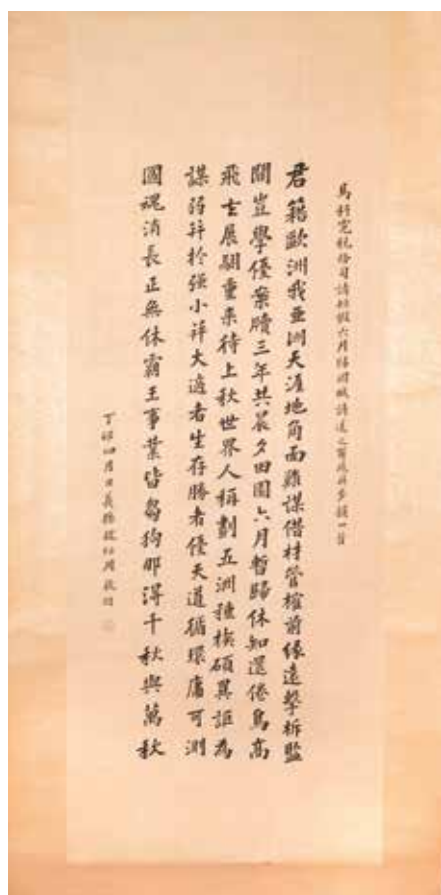 馬 稅務司請 假六月歸 詩送之
君籍歐洲我亞洲天涯地角面難謀借材管榷前緣遠擊柝監
關豈學優案牘三年共晨夕田園六月暫歸休知還倦鳥高
飛去展驥重來待上秋世界人稱劃五洲種族碩異詎為
謀弱并於強小并大適者生存勝者優天道循環庸可測
國魂消長正無休霸王事業皆芻狗那得千秋與萬秋
丁卯四月